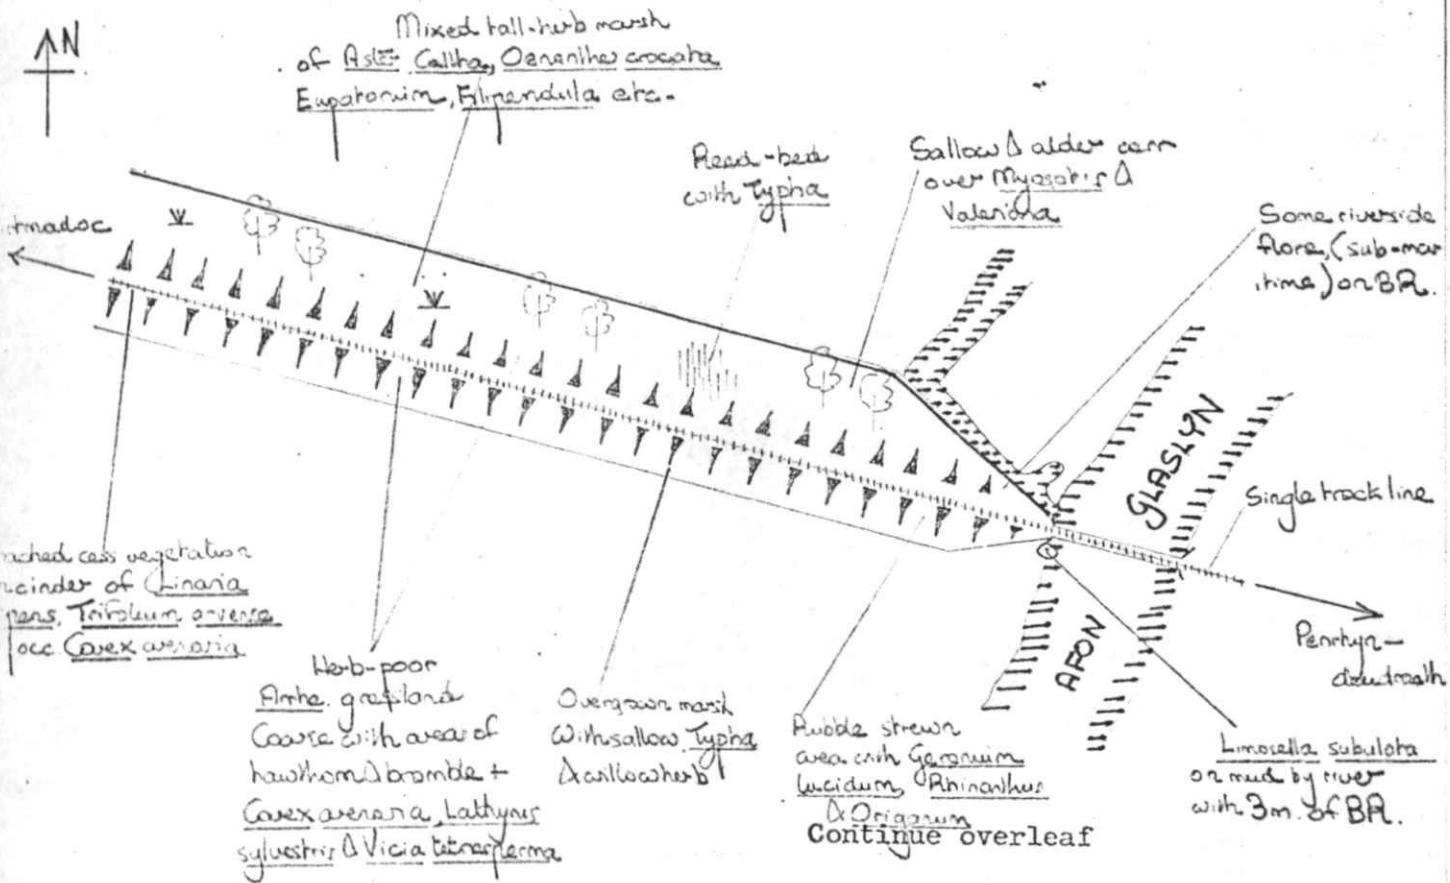 N
Mixed tall-herb marsh
of Aster Caltha, Oenanthe crocata
Eupatorium, Filipendula etc.
Reed-bed
with Typha
Sallow & alder carr
over Myosotis &
Valeriana
Some riverside
flora, (sub-mar
itime) on BR.
tmadoc
GLASLYN
Single track line
AFON
Penrhyn-
deudraeth
ached cess vegetation
cinder of Linaria
pens, Trifolium arvense
occ Carex arenaria
Herb-poor
Arrhe. grassland
Coarse with areas of
hawthorn & bramble +
Carex arenaria, Lathyrus
sylvestris & Vicia tetrasperma
Overgrown marsh
With sallow Typha
& willowherb
Rubble strewn
area with Geranium
lucidum, Rhinanthus
& Origanum
Limosella subulata
on mud by river
with 3m. of BR.
Continue overleaf